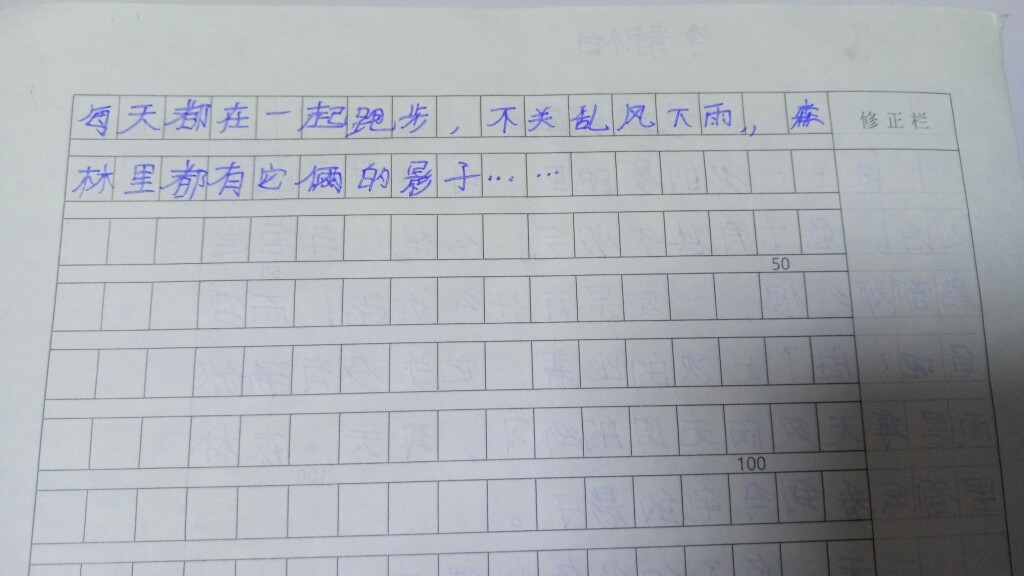 每天都在一起跑步,不关乱风下雨,,森
修正栏
林里都有它俩的影子……
50
100